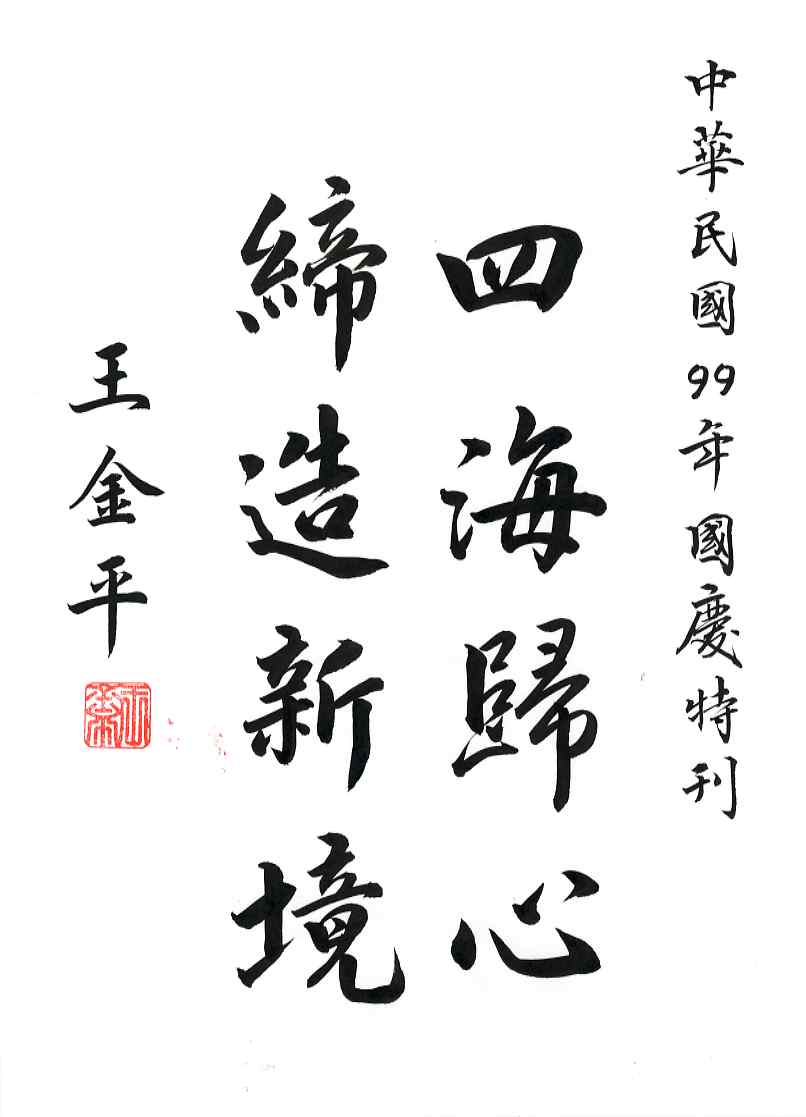 中華民國99年國慶特刊
四海歸心
締造新境
王金平